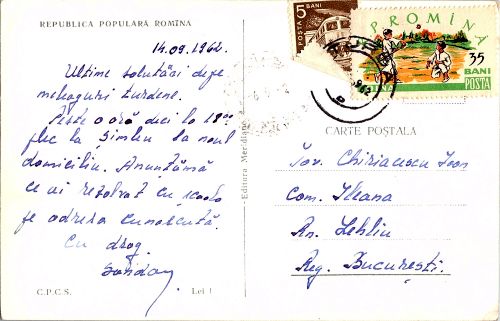 REPUBLICA POPULARĂ ROMÎNA
14.09.1962.
Ultime salutări de pe
meleaguri turdene.
Peste o oră deci la 18⁰⁰
plec la Șimleu la noul
domiciliu. Anunțămă
ce ai rezolvat cu școala
pe adresa cunoscută.
Cu drag
C.P.C.S.
Lei 1
Editura Meridiane
5
BANI
POSTA
R.P.ROMINA
35
BANI
POSTA
CARTE POȘTALA
Tov. Chiriacescu Ioan
Com. Ileana
Rn. Lehliu
Reg. București.